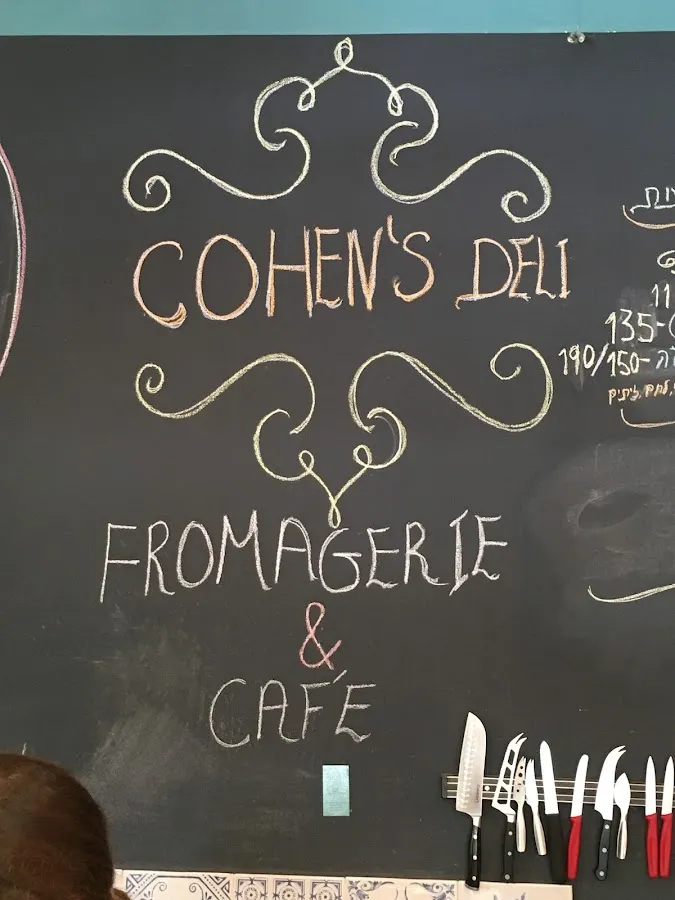 COHEN'S DELI
FROMAGERIE
&
CAFÉ
11
135-
190/150-